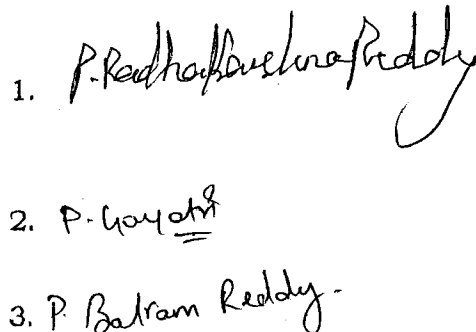 1. P. Radhakrishna Reddy
2. P. Gayatri
3. P. Balram Reddy.